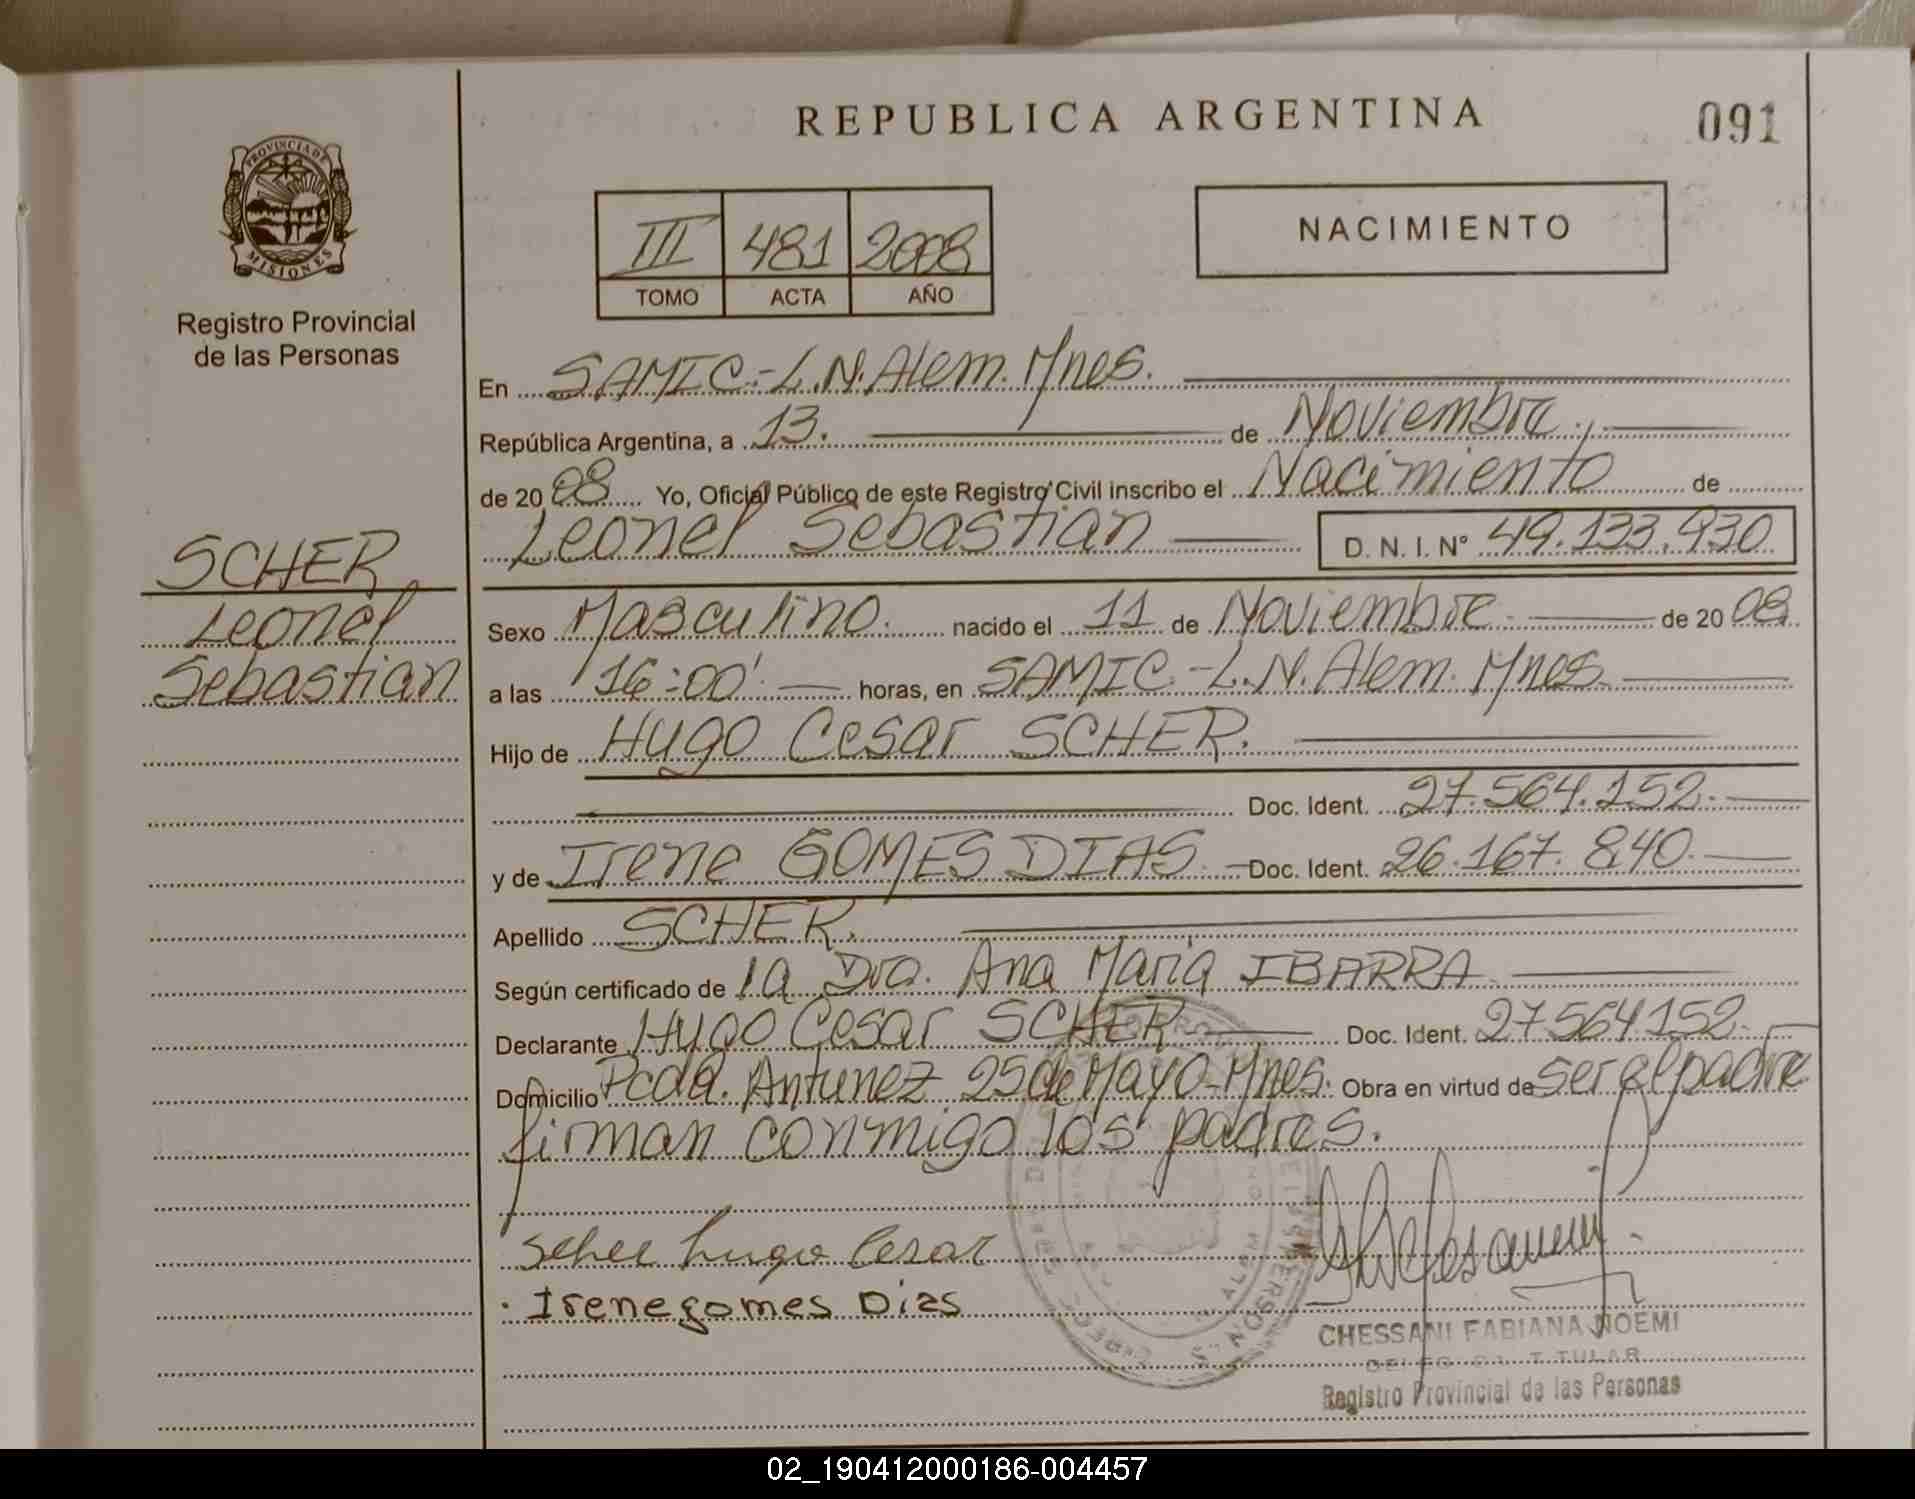 REPUBLICA ARGENTINA
091
PROVINCIA DE
MISIONES
Registro Provincial
de las Personas
III 481 2008
TOMO ACTA AÑO
NACIMIENTO
En SAMIC.-L.N.Alem.Mnes.
República Argentina, a 13. de Noviembre.,
de 2008 Yo, Oficial Público de este Registro Civil inscribo el Nacimiento de
Leonel Sebastian D. N. I. N° 49.133.930
SCHER
Leonel
Sebastian
Sexo Masculino. nacido el 11 de Noviembre de 2008
a las 16:00' horas, en SAMIC.-L.N.Alem. Mnes
Hijo de Hugo Cesar SCHER.
Doc. Ident. 27.564.152.
y de Irene GOMES DIAS. Doc. Ident. 26.167.840.
Apellido SCHER.
Según certificado de la Dra. Ana Maria IBARRA
Declarante Hugo Cesar SCHER Doc. Ident. 27564152.
Domicilio Pcda. Antunez 25 de Mayo-Mnes. Obra en virtud de ser el padre
firman conmigo los padres.
Scher hugo Cesar
Irene gomes Dias
CHESSANI FABIANA NOEMI
TITULAR
Registro Provincial de las Personas
02_190412000186-004457